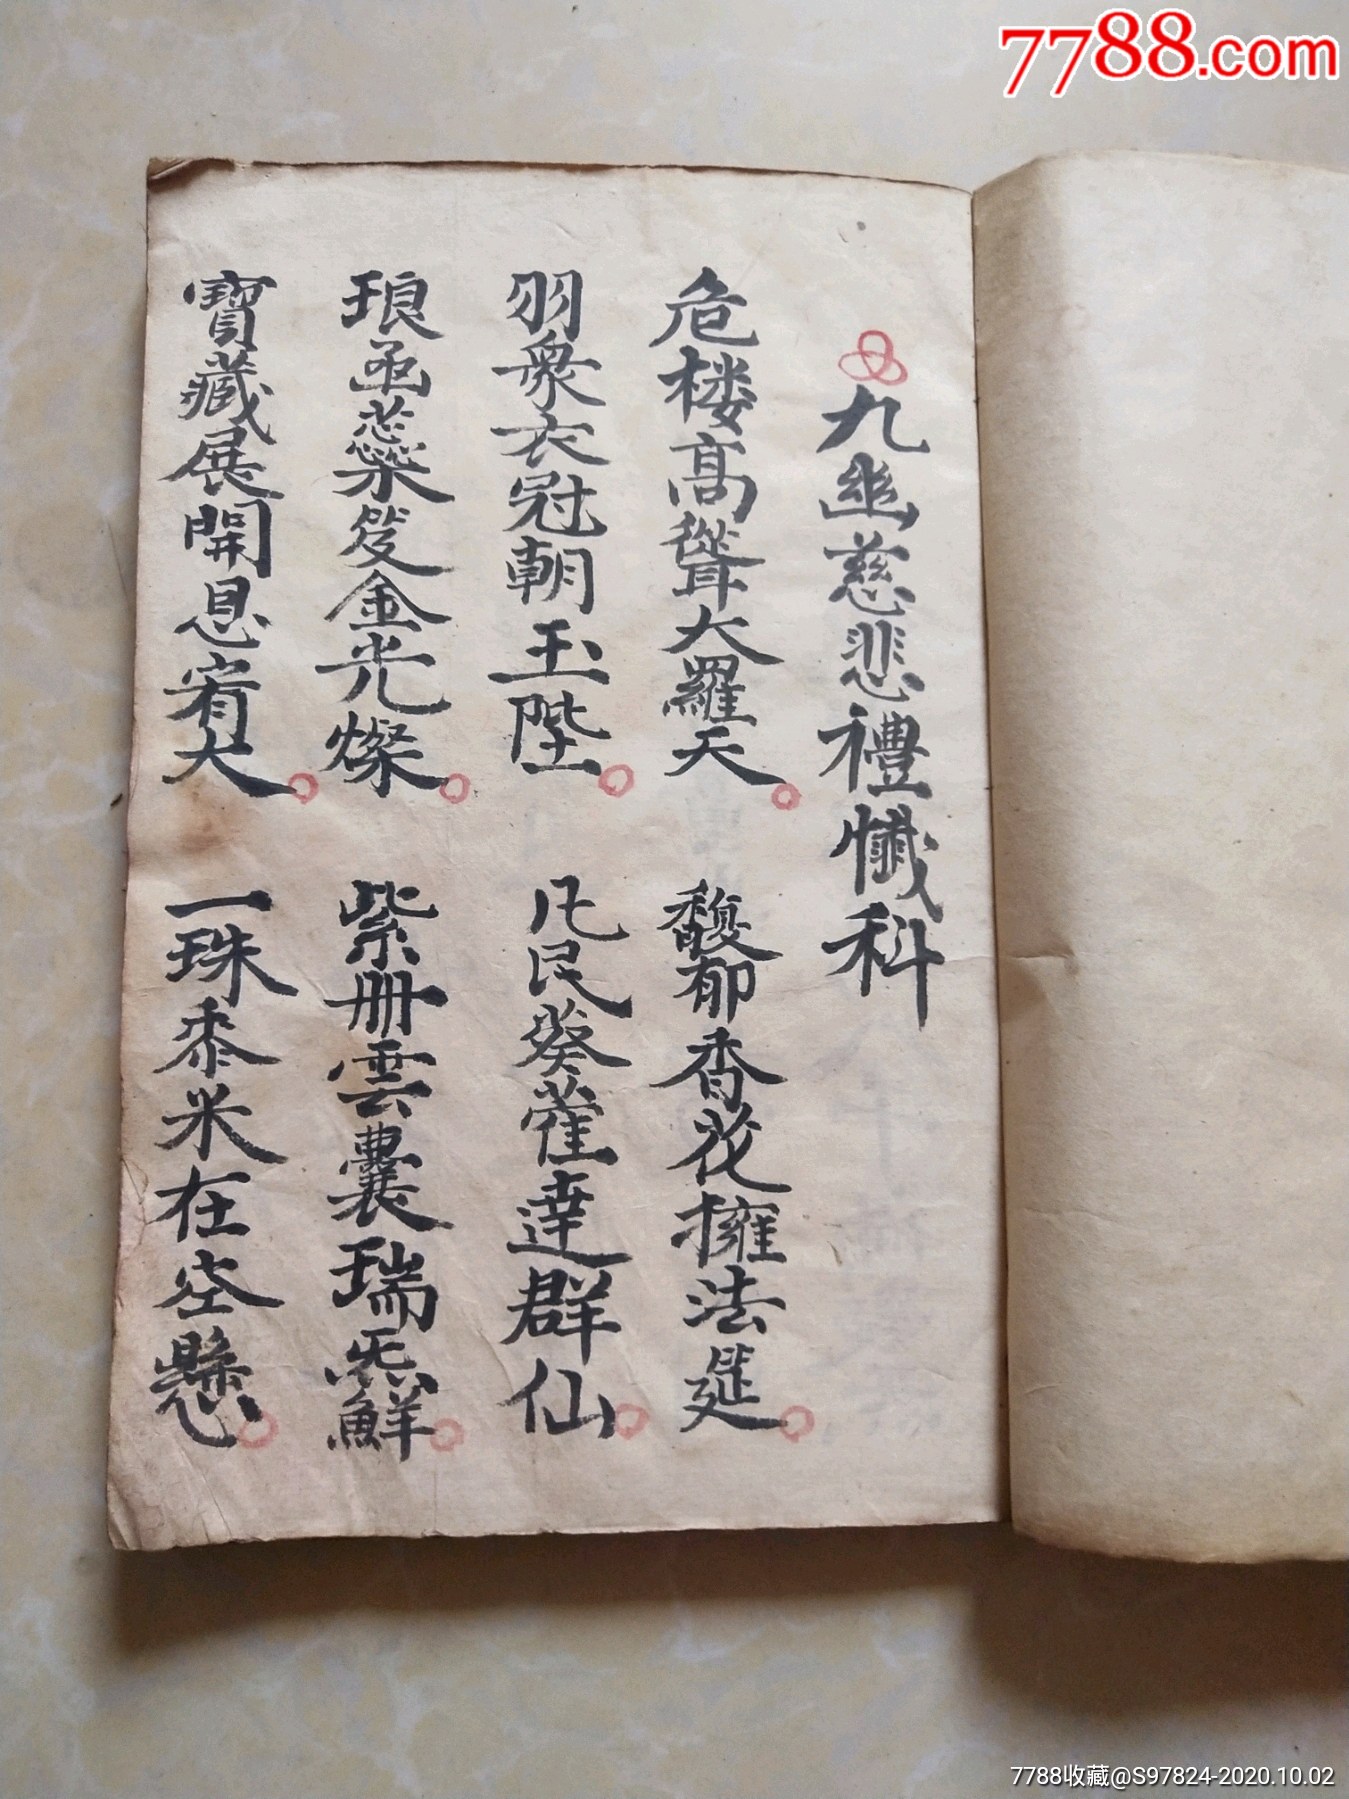 7788.com
九幽慈悲禮懺科
危楼高聳大羅天。馥郁香花擁法筵。
羽衆衣冠朝玉陛。凡民葵藿達群仙。
琅函蕊笈金光燦。紫册雲囊瑞炁鮮。
寶藏展開恩宥大。一珠黍米在空懸。
7788收藏@S97824-2020.10.02